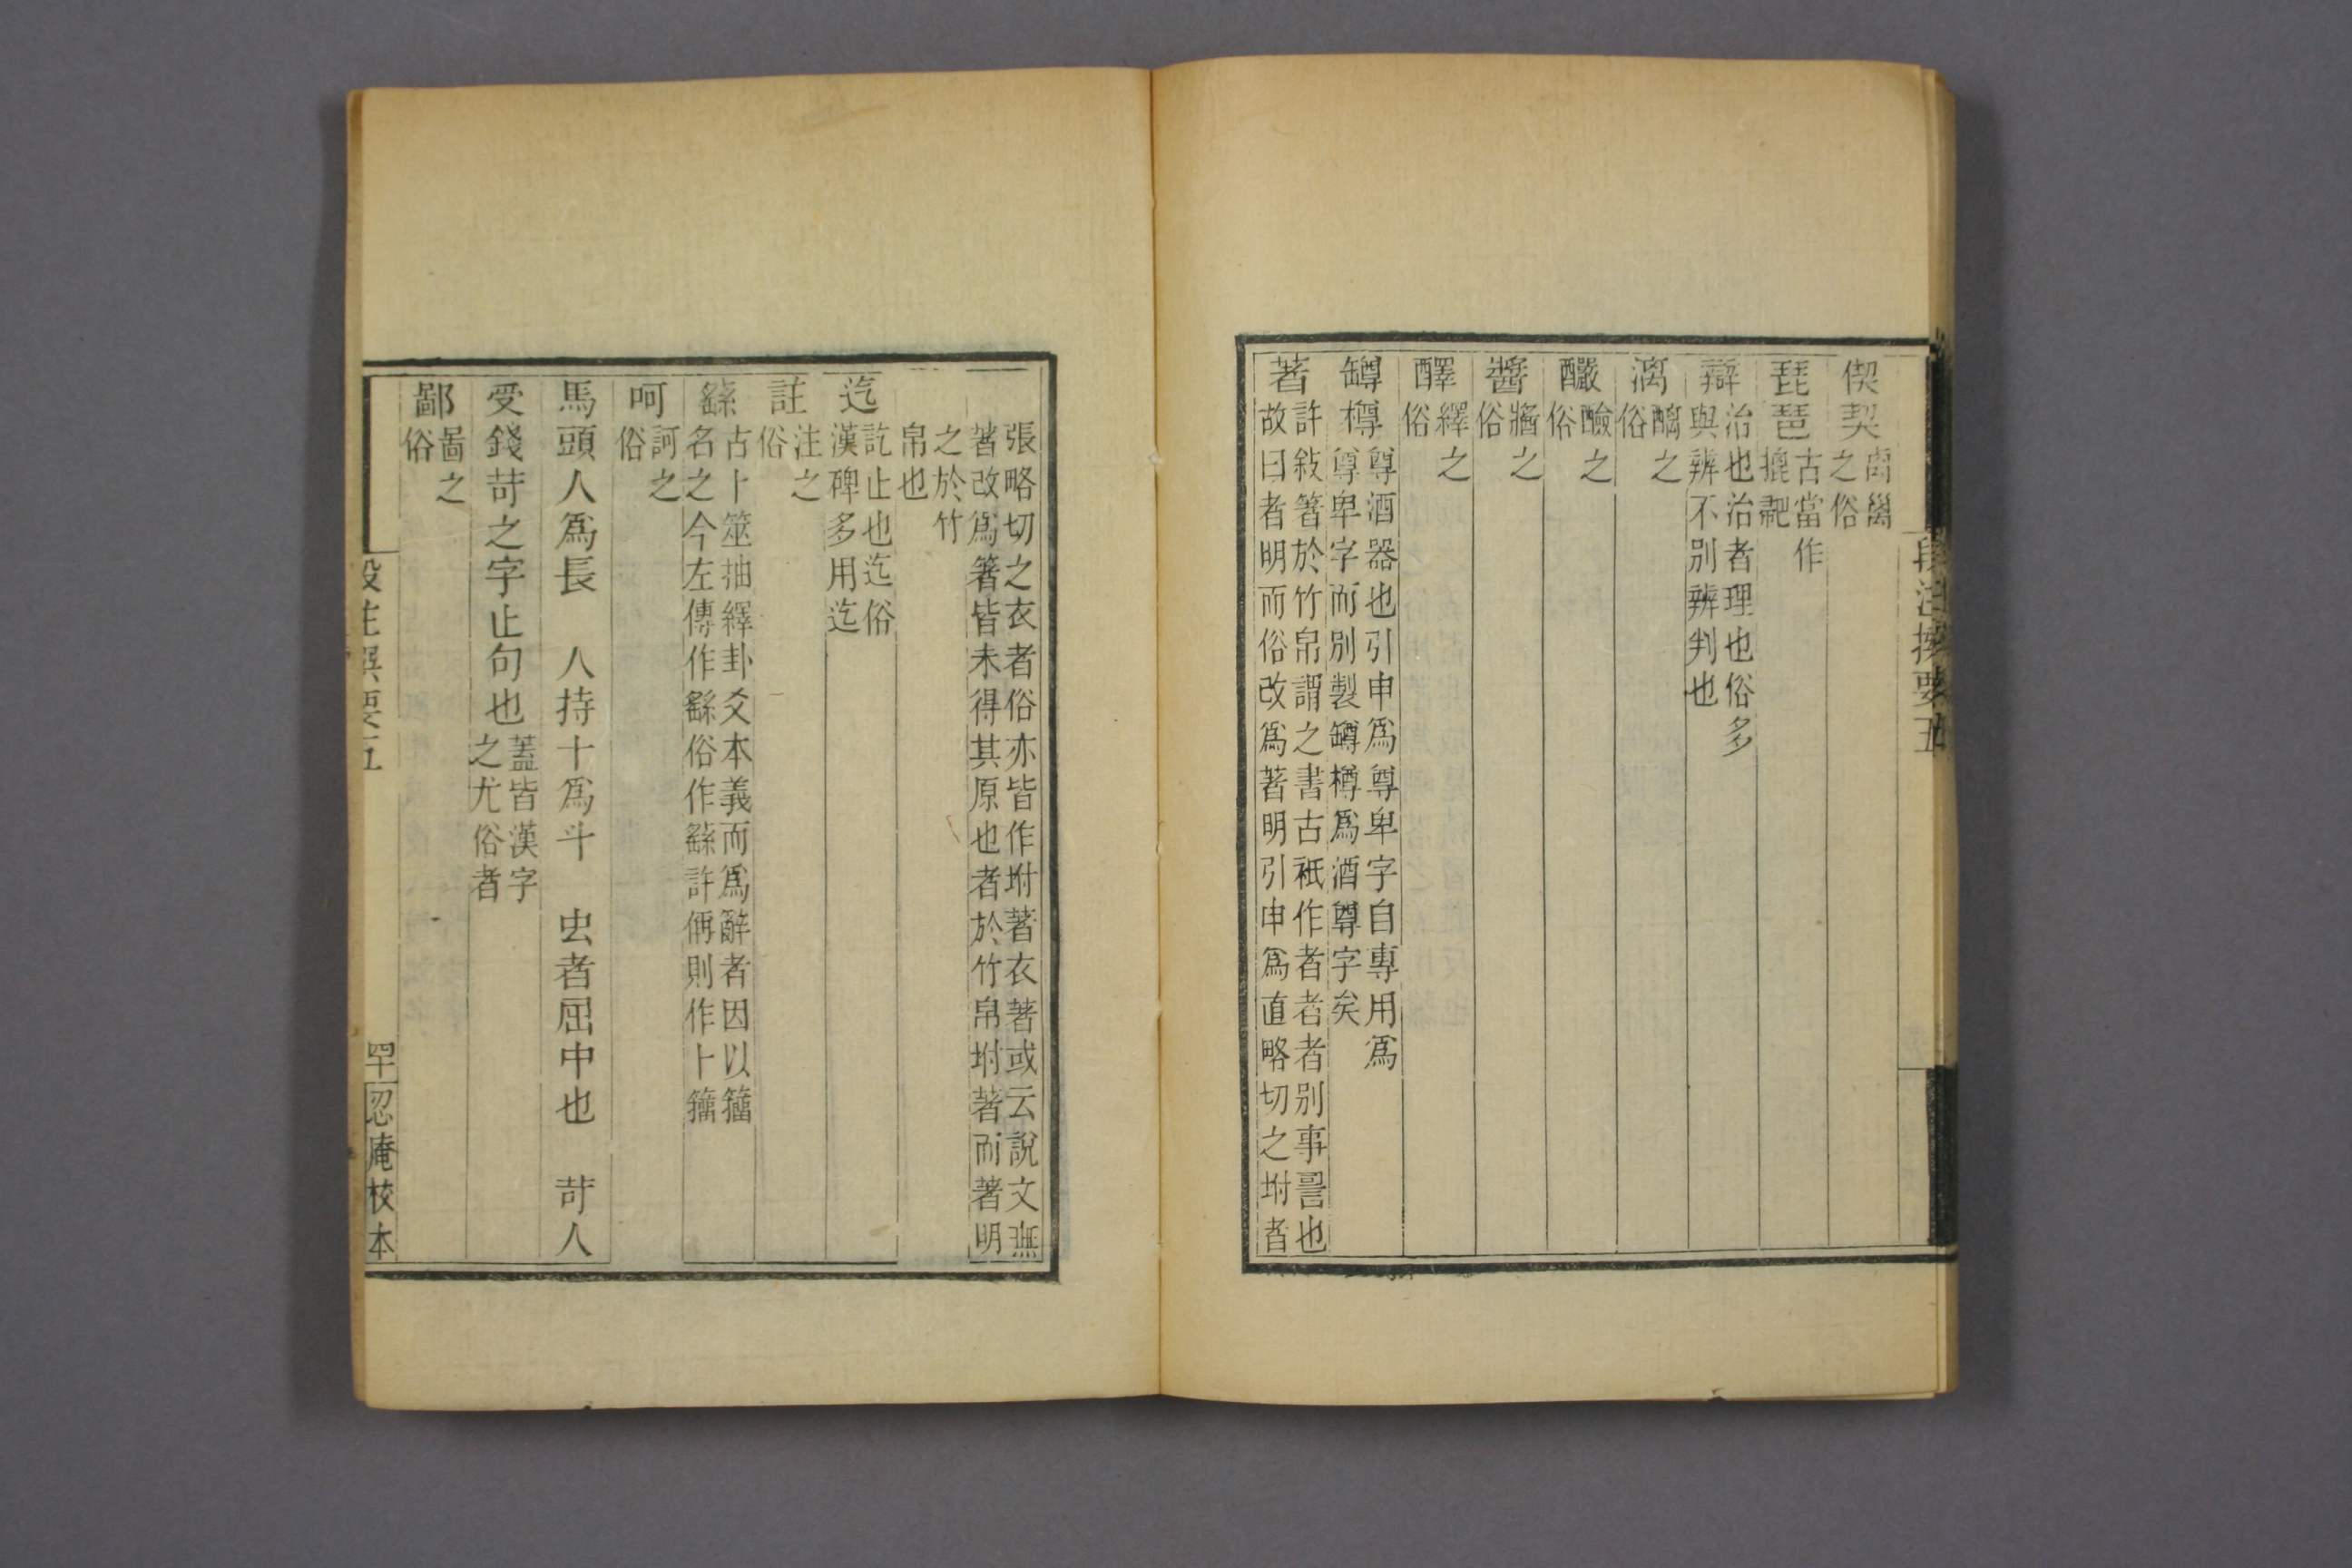 段注撰要五
偰契卨禼
之俗
琵琶古當作
搥䶕
辯治也治者理也俗多
與辨不別辨判也
漓醨之
俗
釅醶之
俗
醬牆之
俗
醳繹之
俗
罇樽尊酒器也引申爲尊卑字自專用爲
尊卑字而別製罇樽爲酒尊字矣
著許敍箸於竹帛謂之書古祇作者者者別事䛐也
故曰者明而俗改爲著明引申爲直略切之坿者
張略切之衣者俗亦皆作坿著衣著或云說文無
著改爲箸皆未得其原也者於竹帛坿著而著明
之於竹
帛也
迄訖止也迄俗
漢碑多用迄
註注之
俗
繇古卜筮抽繹卦爻本義而爲辭者因以籒
名之今左傳作繇俗作繇許偁則作卜籒
呵訶之
俗
馬頭人爲長　人持十爲斗　虫者屈中也　苛人
受錢苛之字止句也蓋皆漢字
之尤俗者
鄙啚之
俗
段注撰要五
忍庵校本